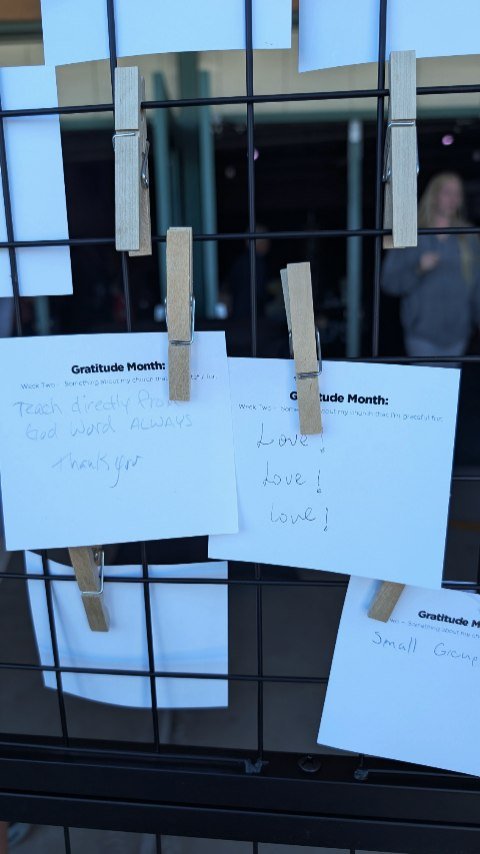 Gratitude Month:
Week Two - Something about my church that I'm grateful for.
Teach directly From
God Word ALWAYS
Thank you
Gratitude Month:
Week Two - Something about my church that I'm grateful for.
Love!
Love!
Love!
Gratitude M
Two - Something about my
Small Group